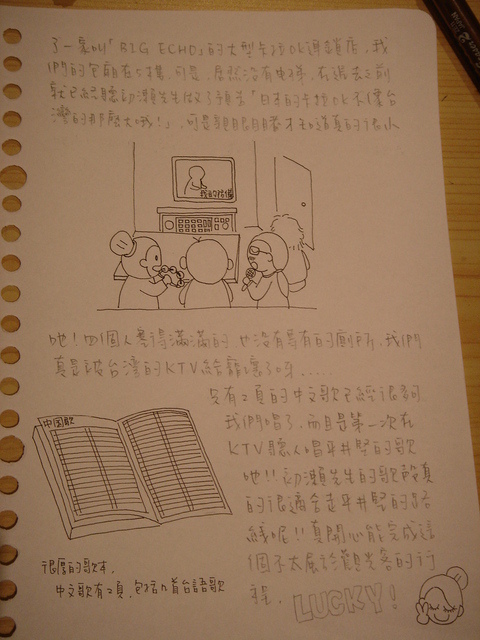 了一家叫「BIG ECHO」的大型卡拉OK連鎖店,我
們的包廂在5樓,可是,居然沒有電梯,在過去之前
就已經聽初瀨先生做了預告「日本的卡拉OK不像台
灣的那麼大哦!」,可是親眼目睹才知道真的很小
我的陪伴
吔!四個人塞得滿滿的 也沒有專有的廁所,我們
真是被台灣的KTV給寵壞了呀......
只有2頁的中文歌已經很夠
我們唱了,而且是第一次在
KTV聽人唱平井堅的歌
吔!!初瀨先生的歌聲真
的很適合走平井堅的路
線呢!!真開心能完成這
個不太屬於觀光客的行
程.
LUCKY!
中国歌
很厚的歌本.
中文歌有2頁,包括几首台語歌